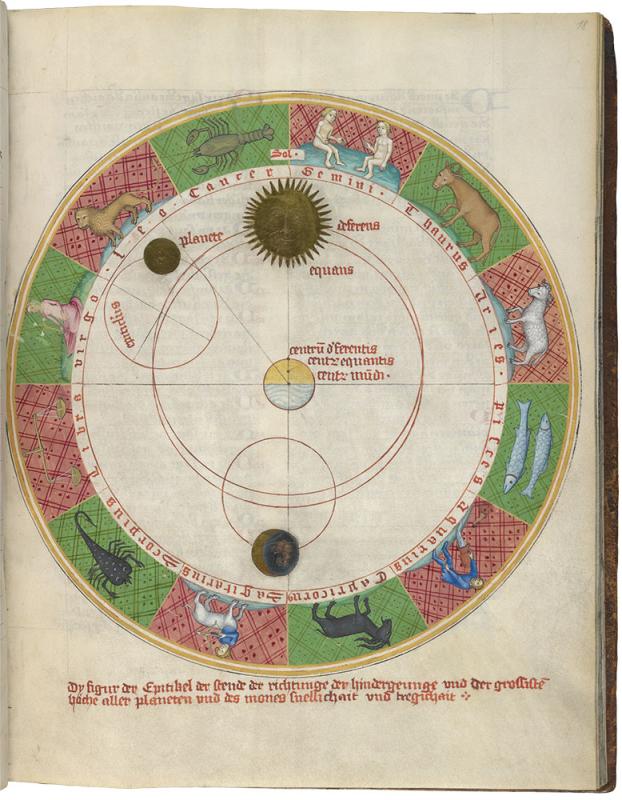 18
Sol ·
Cancer · Gemini · Thaurus Aries · pisces aquarius Capricornus Sagitarius Scorpius Libra virgo · Leo ·
planete
deferens
equans
epiciclus
centrū dferentis
centr equantis
centr mūdi ·
Dy figur der Epitikel der stende der richtunge der hindergeunge vnd der grossiste
höche aller planeten vnd des mones snellichait vnd tregichait